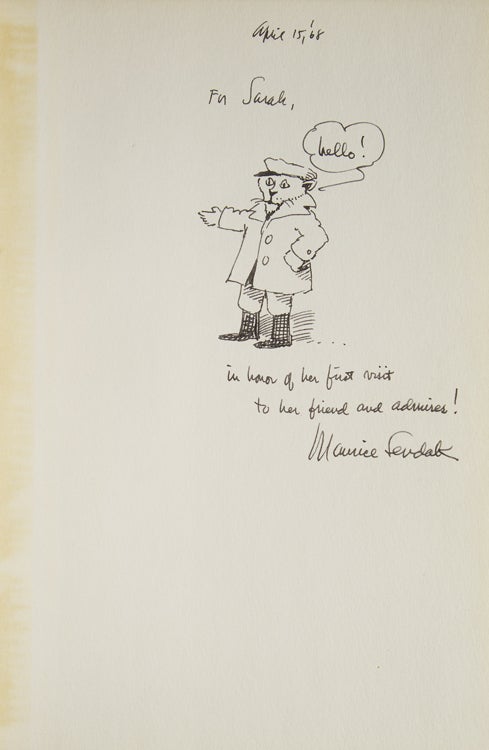 April 15, '68
For Sarah,
hello!
in honor of her first visit
to her friend and admirer!
Maurice Sendak